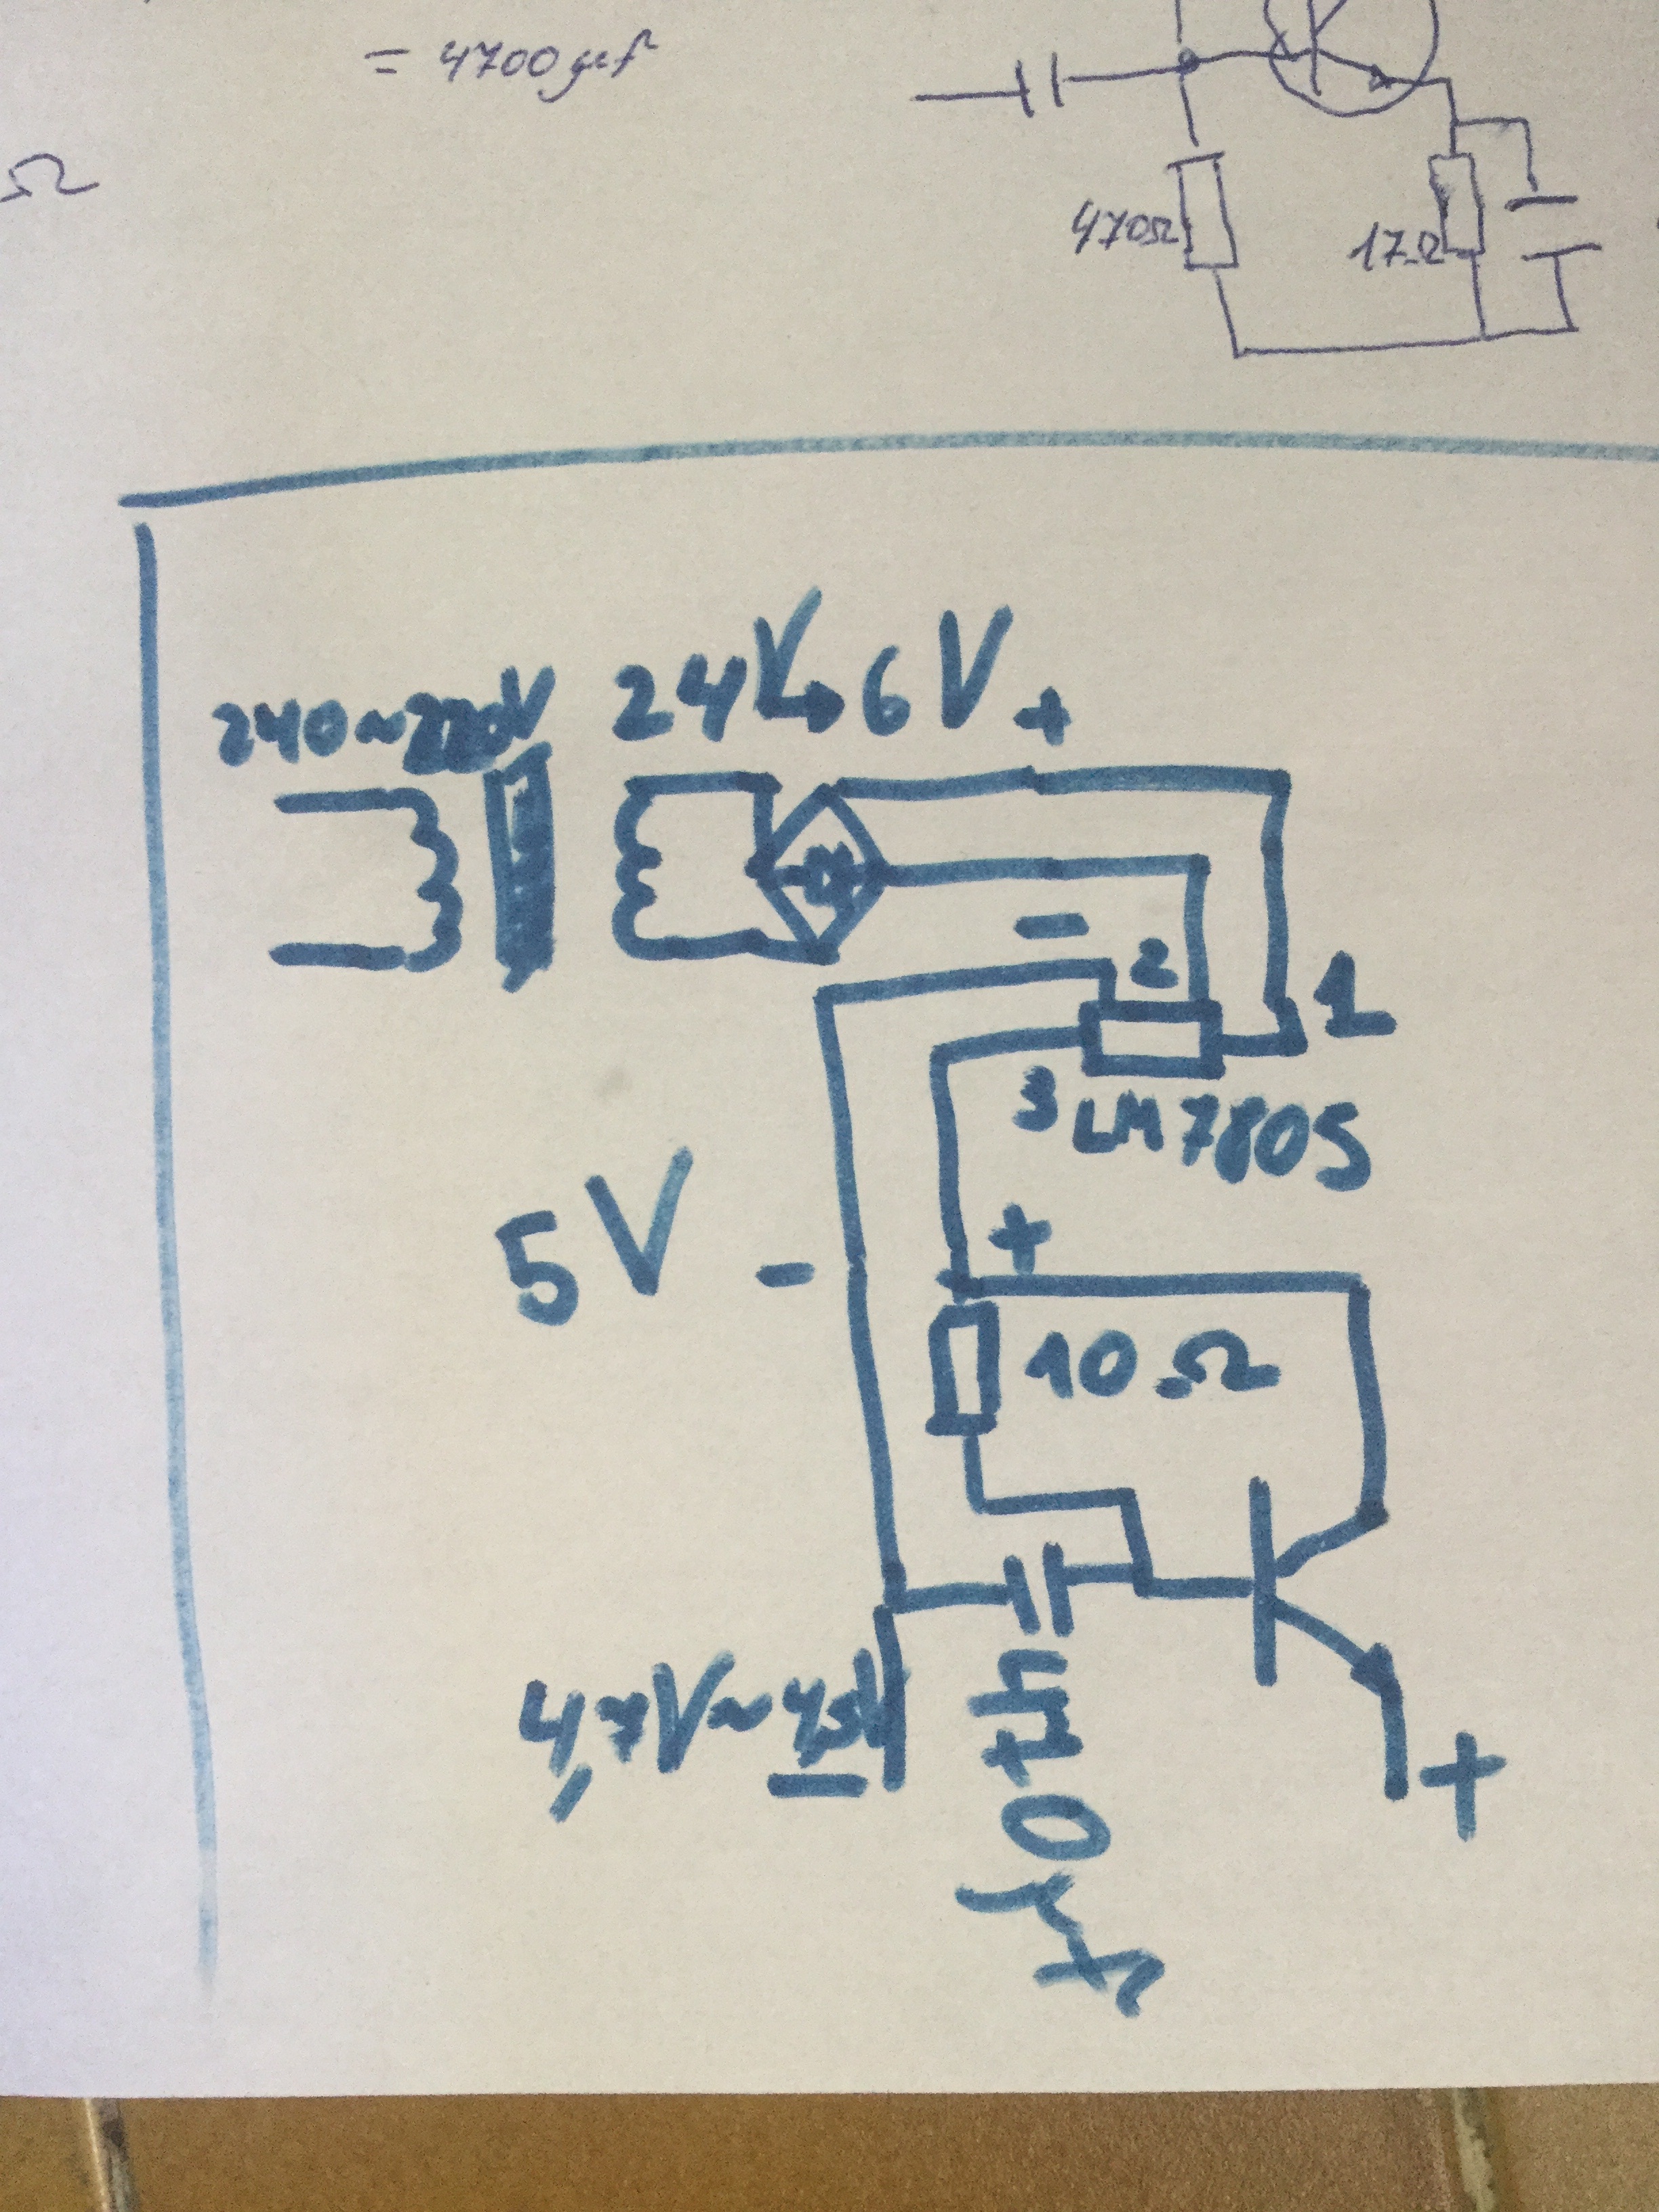 = 4700µf
Ω
470Ω
17Ω
240~220V
24V→6V
+
-
2
1
3
LM7805
5V
-
+
10Ω
470µf
4,7V~
-
+